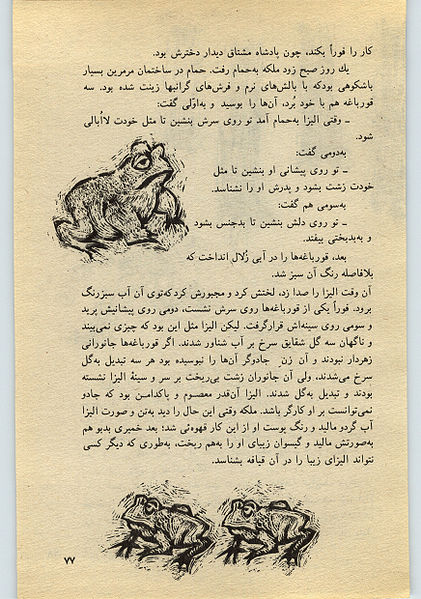 کار را فوراً بکند، چون پادشاه مشتاق دیدار دخترش بود.
یك روز صبح زود ملکه به‌حمام رفت. حمام در ساختمان مرمرین بسیار
باشکوهی بودکه با بالش‌های نرم و فرش‌های گرانبها زینت شده بود. سه
قورباغه هم با خود بُرد، آن‌ها را بوسید و به‌اوّلی گفت:
ـ وقتی الیزا به‌حمام آمد تو روی سرش بنشین تا مثل خودت لااُبالی
شود.
به‌دومی گفت:
ـ تو روی پیشانی او بنشین تا مثل
خودت زشت بشود و پدرش او را نشناسد.
به‌سومی هم گفت:
ـ تو روی دلش بنشین تا بدجنس بشود
و به‌بدبختی بیفتد.
بعد، قورباغه‌ها را در آبی زُلال انداخت که
بلافاصله رنگ آن سبز شد.
آن وقت الیزا را صدا زد، لختش کرد و مجبورش کردکه‌توی آن آب سبزرنگ
برود. فوراً یکی از قورباغه‌ها روی سرش نشست، دومی روی پیشانیش پرید
و سومی روی سینه‌اش قرارگرفت. لیکن الیزا مثل این بود که چیزی نمی‌بیند
و ناگهان سه گل شقایق سرخ بر آب شناور شدند. اگر قورباغه‌ها جانورانی
زهردار نبودند و آن زن جادوگر آن‌ها را نبوسیده بود هر سه تبدیل به‌گل
سرخ می‌شدند، ولی آن جانوران زشت بی‌ریخت بر سر و سینهٔ الیزا نشسته
بودند و تبدیل به‌گل شدند. الیزا آن‌قدر معصوم و پاکدامن بود که جادو
نمی‌توانست بر او کارگر باشد. ملکه وقتی این حال را دید به‌تن و صورت الیزا
آب گردو مالید و رنگ پوست او از این کار قهوه‌ئی شد؛ بعد خمیری بدبو هم
به‌صورتش مالید و گیسوان زیبای او را به‌هم ریخت، به‌طوری که دیگر کسی
نتواند الیزای زیبا را در آن قیافه بشناسد.
۷۷